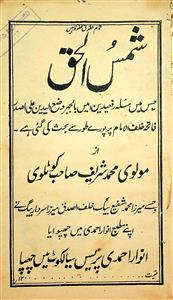 شمس الحق
جس میں مسئلہ رفعیدین میں بالجہر وضع الیدین علی الصدر
فاتحہ خلف الامام پر پورے طور سے بحث کی گئی ہے
از
مولوی محمد شریف صاحب کوٹلوی
جسے میرزا محمد شفیع بیگ خلف الصدق میرزا سردار بیگ نے
اپنے مطبع انوار احمدی میں چھپوایا
انوار احمدی پریس سیالکوٹ میں چھپا